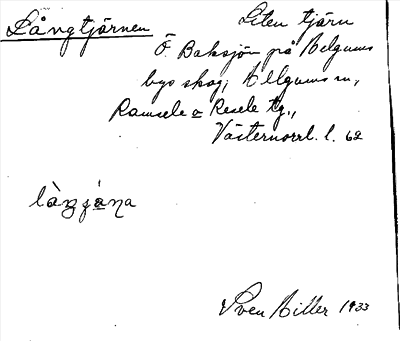 Långtjärnen
Liten tjärn
Ö. Baksjön på Helgums
bys skog, Helgums sn,
Ramsele o Resele tg.,
Västernorrl. l. 62
Sven Hitter 1933